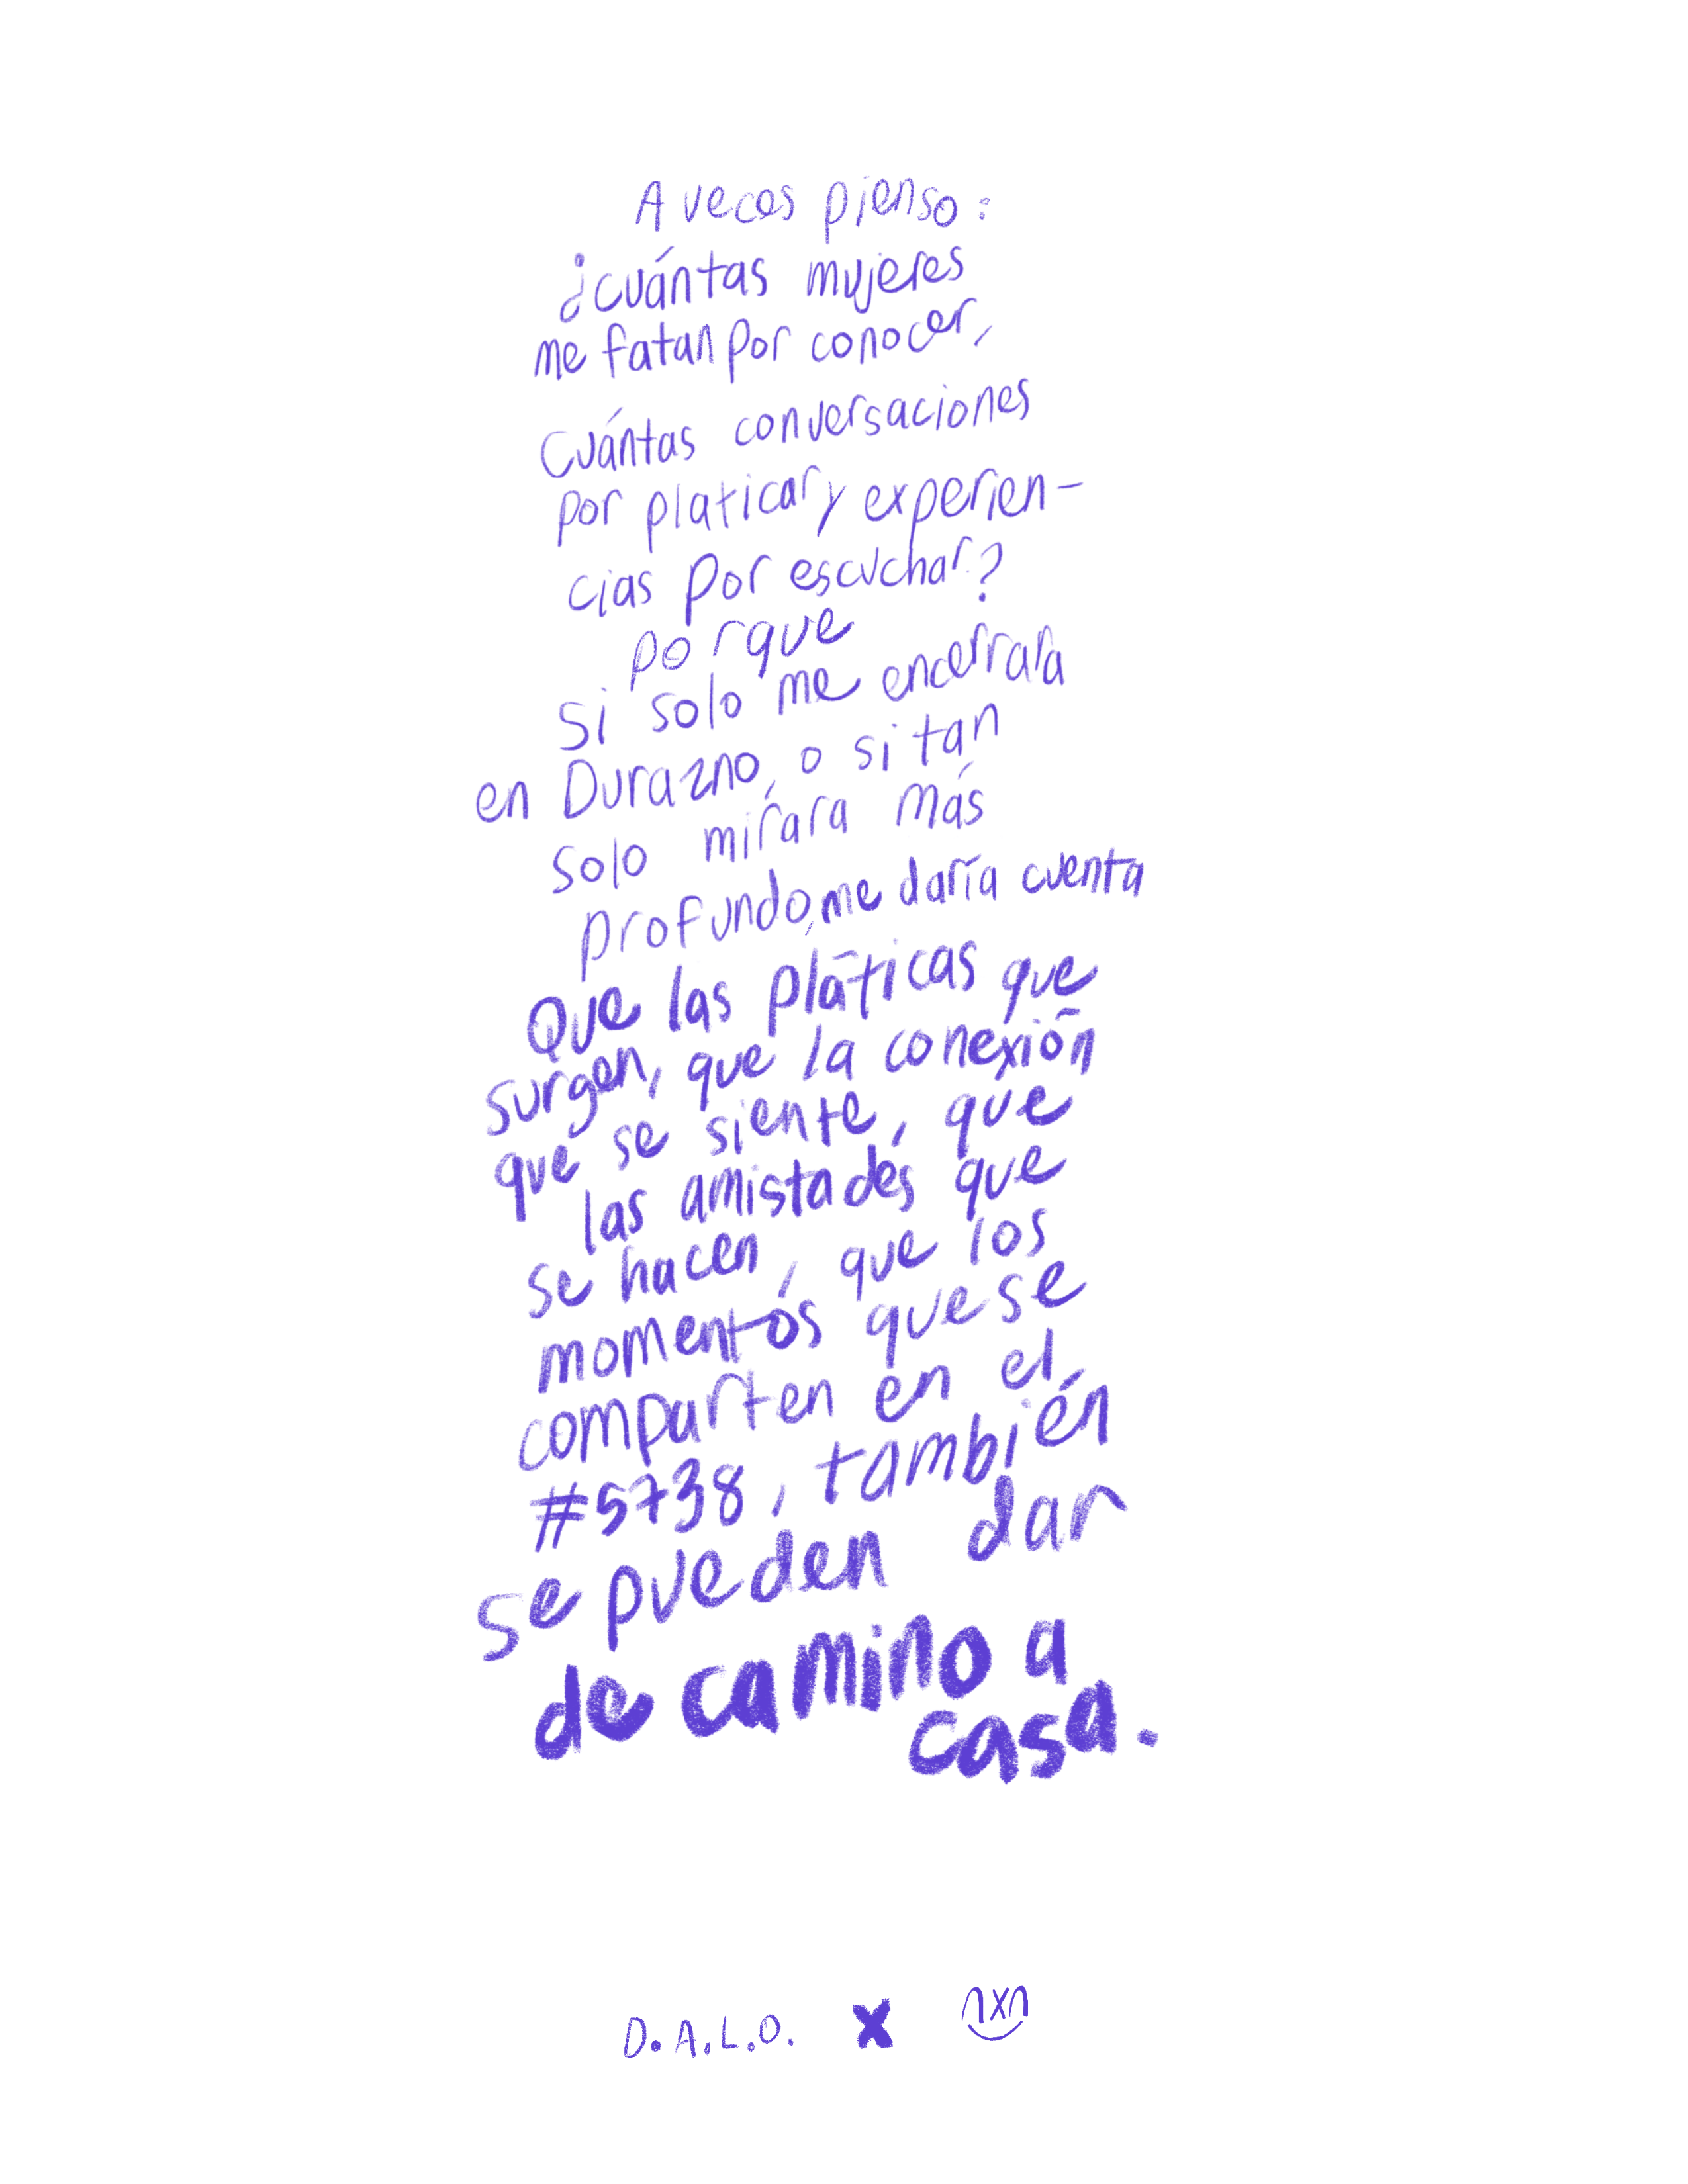 A veces pienso:
¿cuántas mujeres
me fatan por conocer,
Cuántas conversaciones
por platicar y experien-
cias por escuchar?
porque
si solo me encerrara
en Durazno, o si tan
solo mirara más
profundo, me daría cuenta
Que las pláticas que
surgen, que la conexión
que se siente, que
las amistades que
se hacen, que los
momentos que se
comparten en el
#5738, también
se pueden dar
de camino a
casa.
D.A.L.O. X nxn